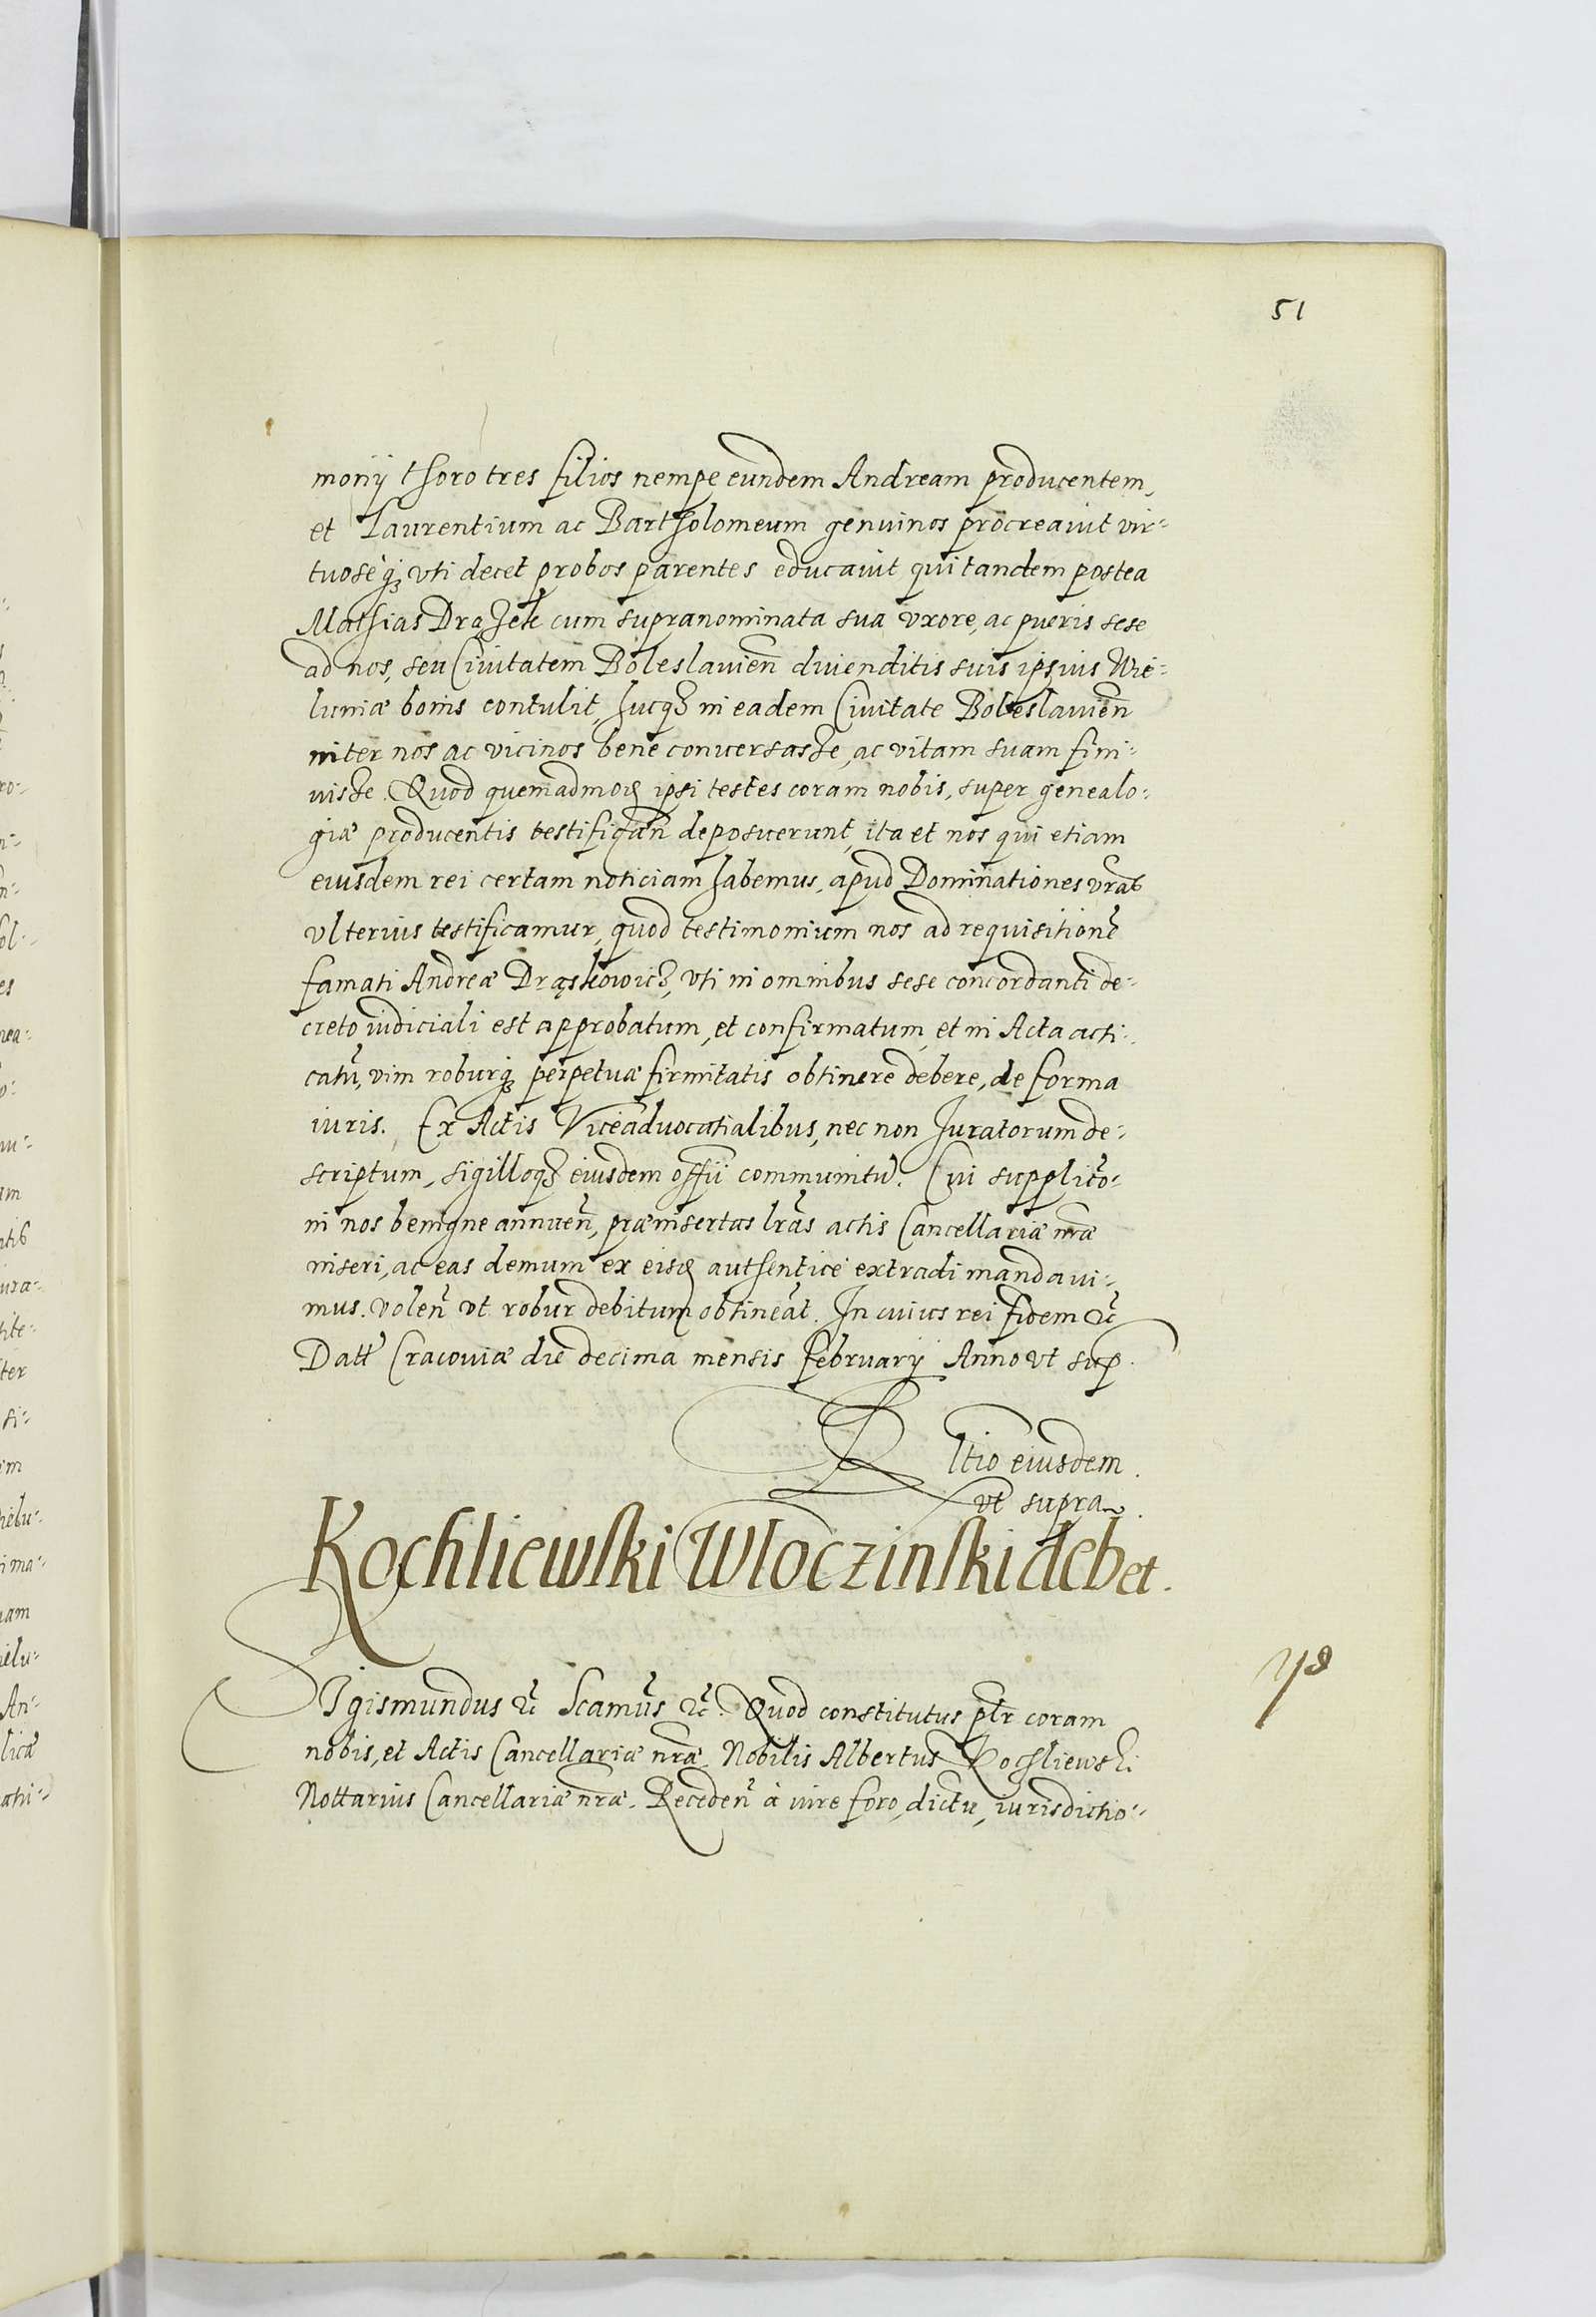 51
monij thoro tres filios nempe eundem Andream producentem,
et Laurentium ac Bartholomeum genuinos procreavit vir⸗
tuoséq₃ vti decet probos parentes educavit qui tandem postea
Mathias Draszek cum supranominata sua vxore, ac pueris sese
ad nos, seu Civitatem Boleslavien̄ divenditis suis ipsius Wie⸗
luniæ bonis contulit, hucq₃ in eadem Civitate Boleslavien̄
inter nos ac vicinos bene conversasse, ac vitam suam fini⸗
visse. Quod quemadmoꝫ ipsi testes coram nobis, super genealo⸗
giæ producentis testifican̄ deposuerunt, ita et nos qui etiam
eiusdem rei certam noticiam habemus, apud Dominationes vrãs
vlterius testificamur, quod testimonium nos ad requisitionē
famati Andreæ Drąskowicz, vti in omnibus sese concordanti de⸗
creto iudiciali est approbatum, et confirmatum, et in Acta acti⸗
catū, vim roburq₃ perpetuæ firmitatis obtinere debere, de forma
iuris. Ex Actis Viceadvocatialibus, nec non Juratorum de⸗
scriptum, sigilloq₃ eiusdem offii communitū. Cui supplicõ⸗
ni nos benigne annuen̄, præinsertas lrãs actis Cancellariæ nr̃æ
inseri, ac eas demum ex eisꝫ authentice extradi mandavi⸗
mus. volen̄ vt robur debitum obtineãt. In cuius rei fidem &c̃
Datt̃ Cracoviæ die decima mensis February Anno vt sup.
Rltio eiusdem.
vt supra.
Kochliewski Wloczinski debet.
Sigismundus &c̃ Scamūs &c̃. Quod constitutus pltr̃ coram
nobis, et Actis Cancellariæ nr̃æ, Nobilis Albertus Kochliewski
Nottarius Cancellariæ nr̃æ. Receden̄ à iure foro, dictu, iurisdictio⸗